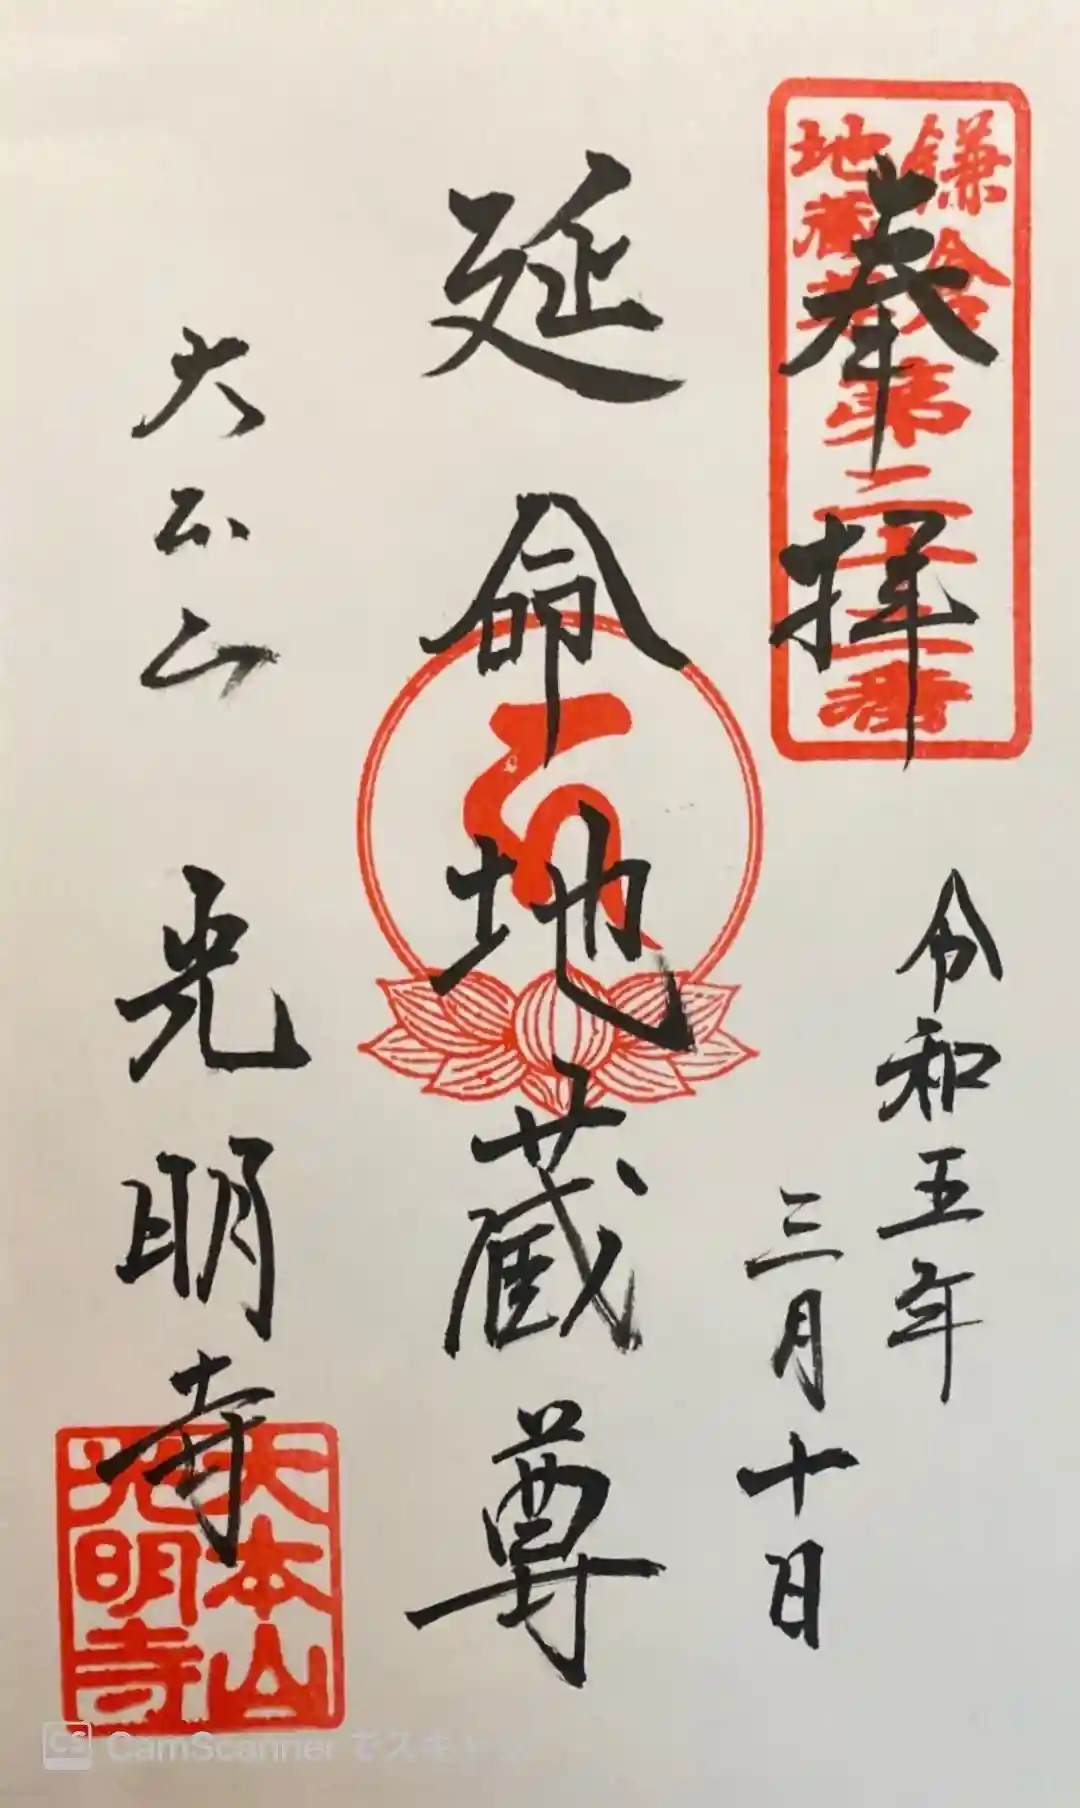 奉拝
鎌倉
地蔵尊
第二十二番
令和五年
三月十日
延命地蔵尊
大本山
光明寺
大本山
光明寺
CS CamScanner でスキャン